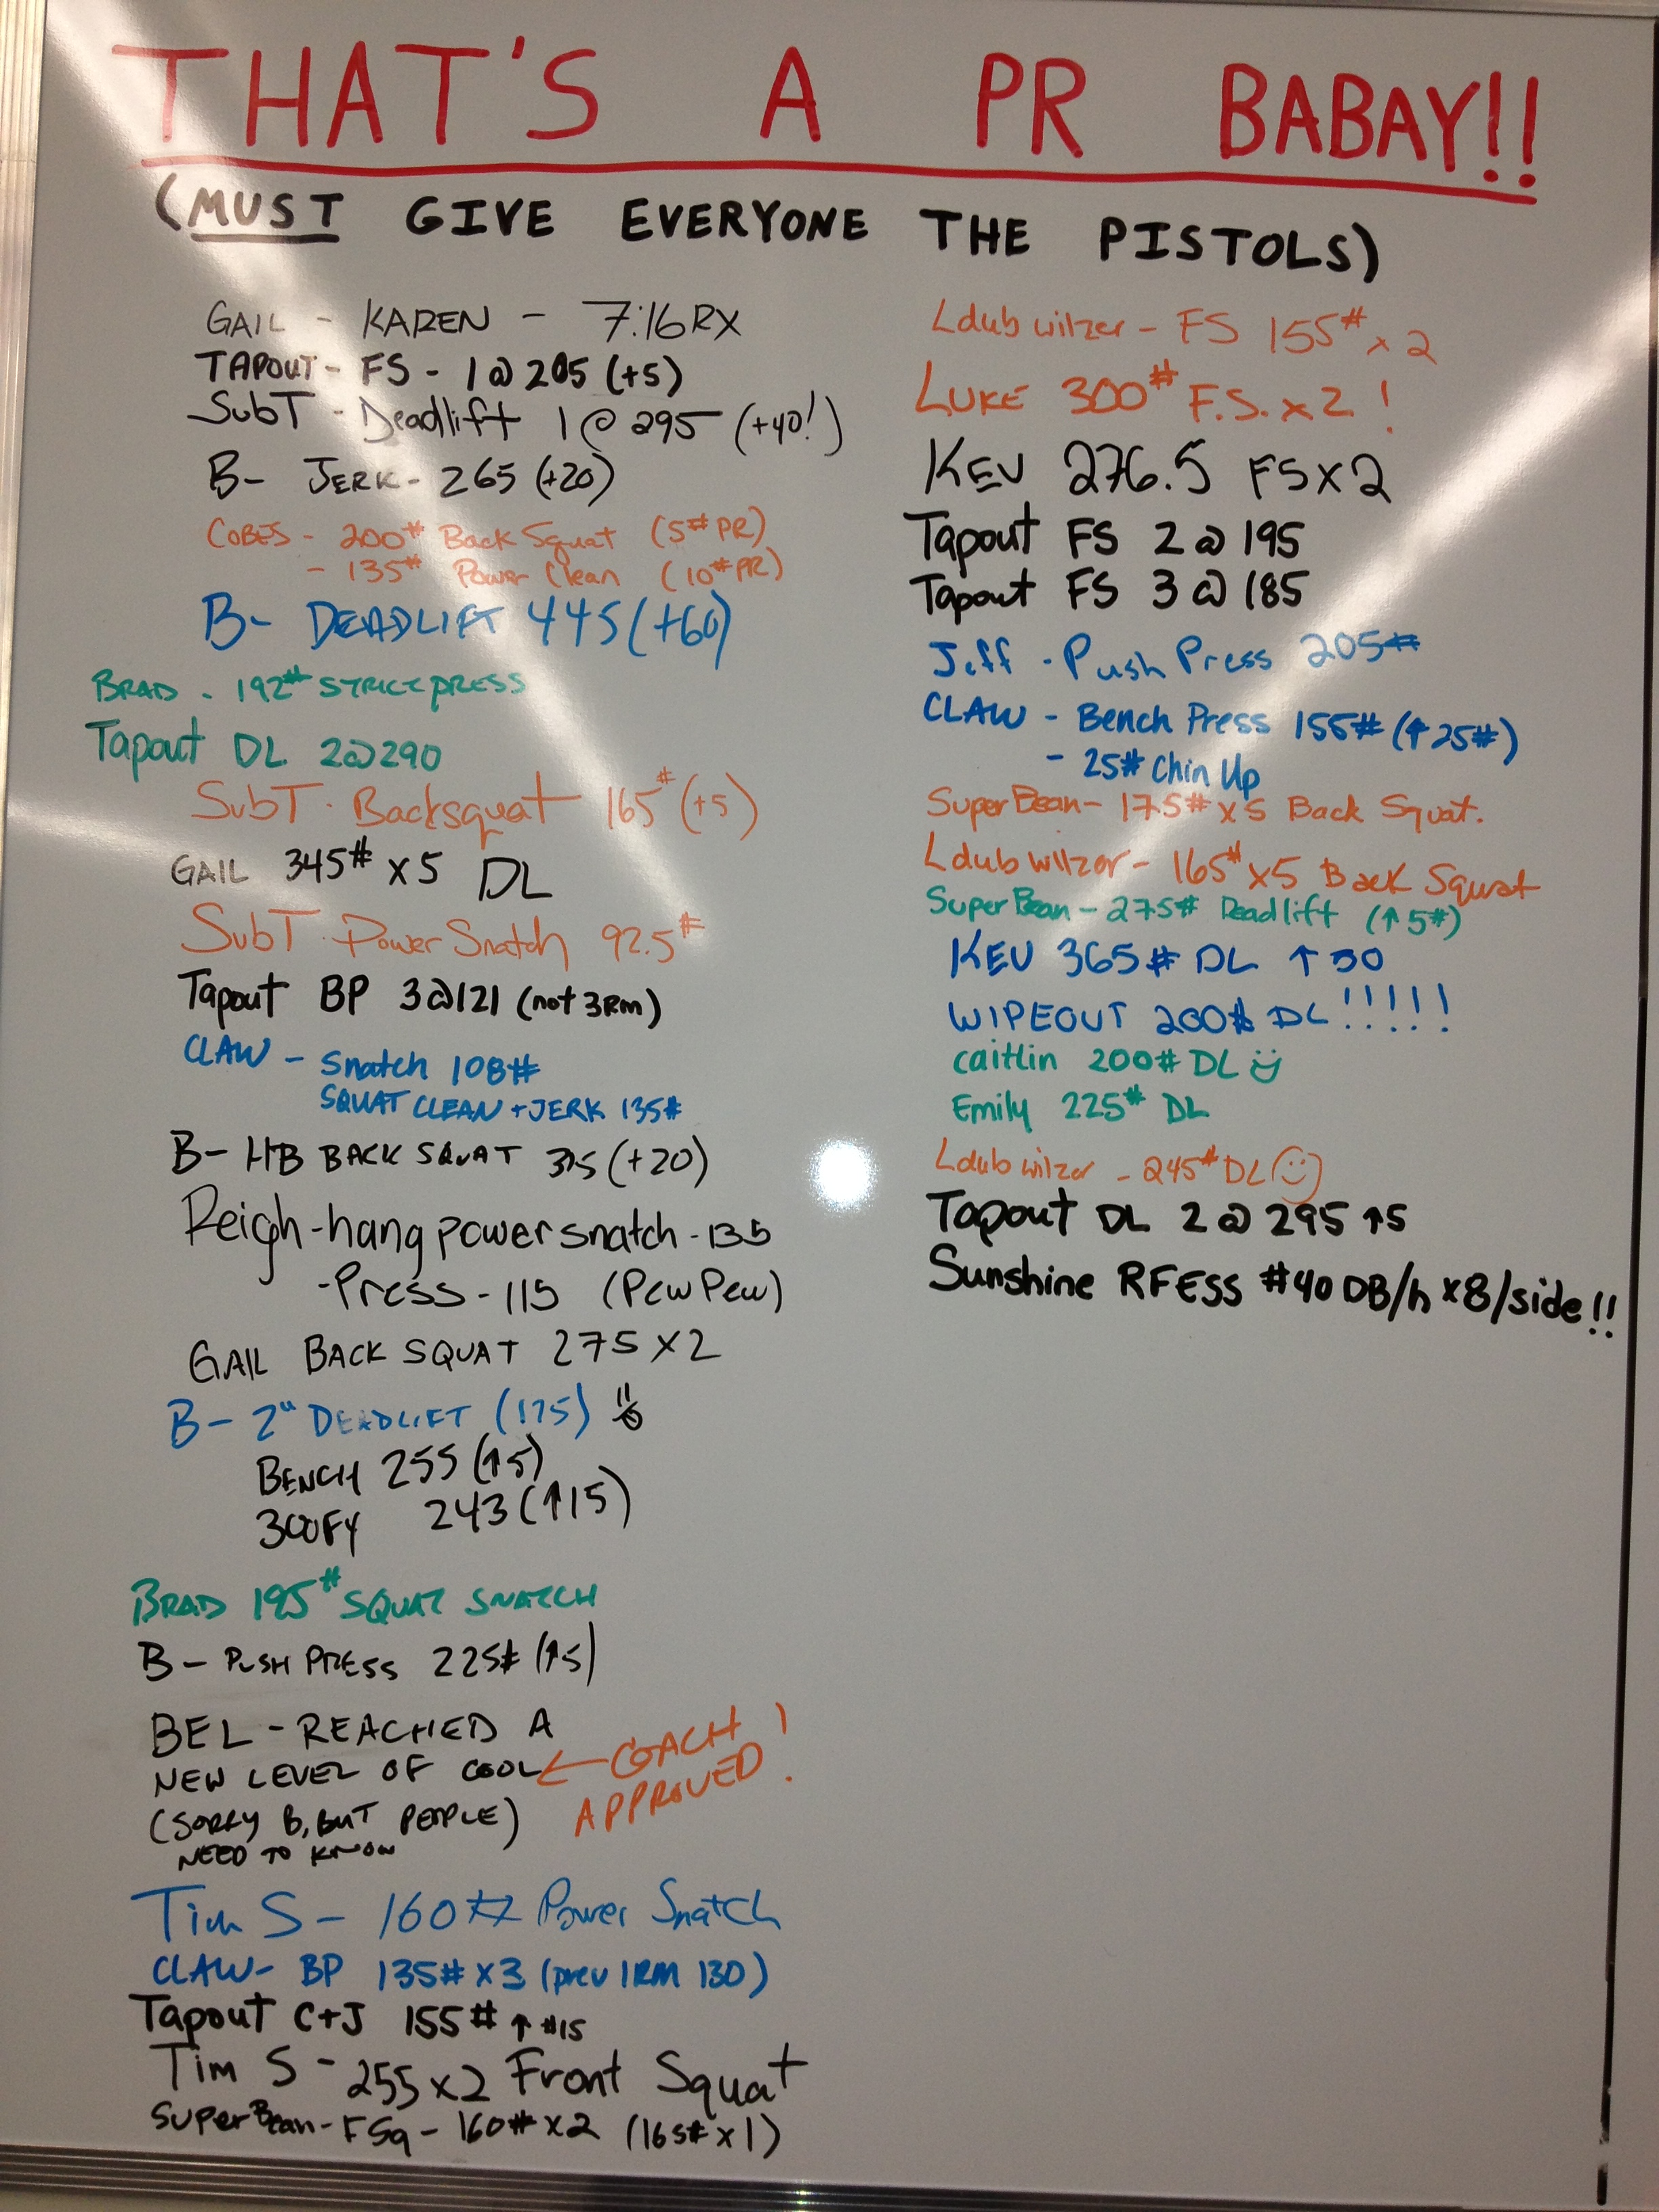 THAT'S A PR BABAY!!
(MUST GIVE EVERYONE THE PISTOLS)
GAIL - KAREN - 7:16 RX
TAPOUT - FS - 1 @ 205 (+5)
SubT - Deadlift 1 @ 295 (+40!)
B- JERK - 265 (+20)
COBES - 200# Back Squat (5# PR)
- 135# Power Clean (10# PR)
B- DEADLIFT 445 (+60)
BRAD - 192# STRICT PRESS
Tapout DL 2@290
SubT - Backsquat 165# (+5)
GAIL 345# x5 DL
SubT - Power Snatch 92.5#
Tapout BP 3@121 (not 3RM)
CLAW - Snatch 108#
SQUAT CLEAN + JERK 135#
B- HB BACK SQUAT 315 (+20)
Reigh - hang power snatch - 135
- Press - 115 (Pew Pew)
GAIL BACK SQUAT 275 x 2
B- 2" DEADLIFT (175)
BENCH 255 (↑5)
300FY 243 (↑15)
BRAD 195# SQUAT SNATCH
B- PUSH PRESS 225# (↑5)
BEL - REACHED A
NEW LEVEL OF COOL ← COACH APPROVED!
(SORRY B, BUT PEOPLE)
NEED TO KNOW
Tim S - 160# Power Snatch
CLAW - BP 135# x 3 (prev 1RM 130)
Tapout C+J 155# ↑ #15
Tim S - 255 x 2 Front Squat
SuperBean - FSq - 160# x 2 (165# x 1)
Ldub wilzer - FS 155# x 2
LUKE 300# F.S. x 2 !
KEV 276.5 FS x 2
Tapout FS 2 @ 195
Tapout FS 3 @ 185
Jeff - Push Press 205#
CLAW - Bench Press 155# (↑25#)
- 25# Chin Up
SuperBean - 175# x 5 Back Squat.
Ldub wilzor - 165# x5 Back Squat
SuperBean - 275# Deadlift (↑5#)
KEV 365# DL ↑ 30
WIPEOUT 200# DL!!!!!
caitlin 200# DL
Emily 225# DL
Ldub wilzer - 245# DL
Tapout DL 2 @ 295 ↑5
Sunshine RFESS #40 DB/h x8/side!!